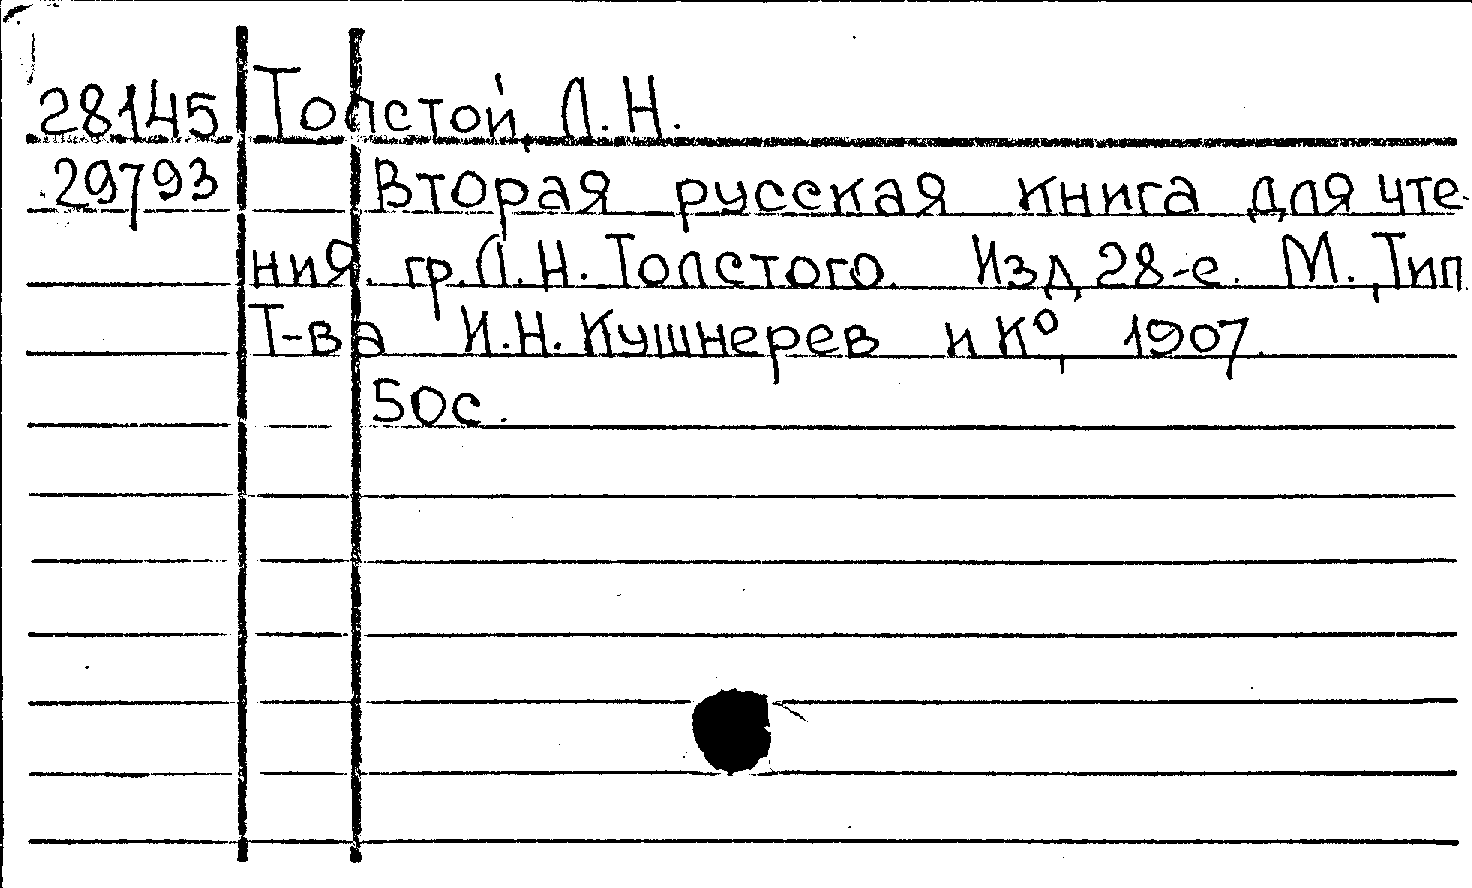 28145 Толстой, Л. Н.
29793 Вторая русская книга для чте-
ния. гр. Л. Н. Толстого. Изд 28-е. М., Тип
Т-ва И. Н. Кушнерев и К⁰, 1907.
50с.